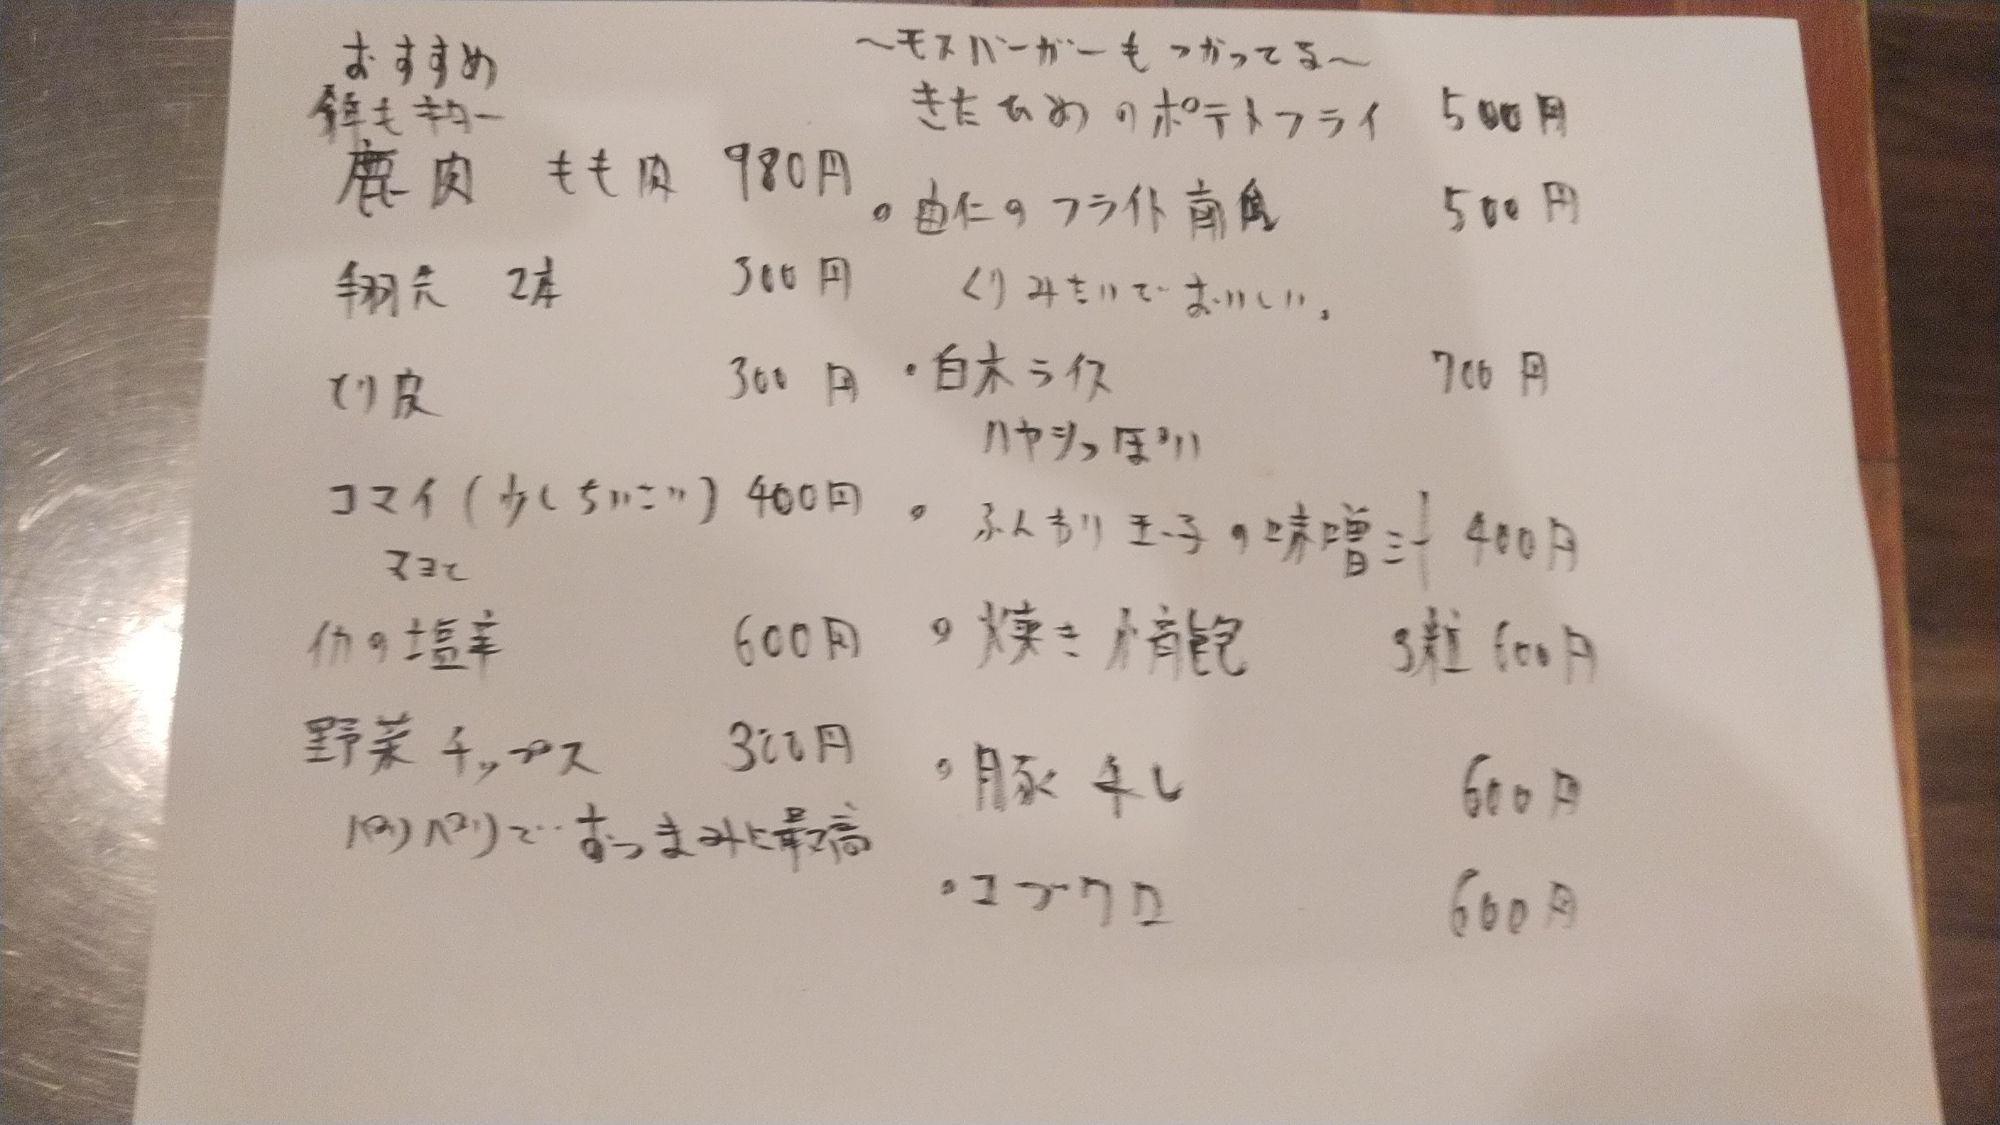 おすすめ
鹿肉 もも肉 980円
手羽先 2本 300円
とり皮 300円
コマイ(少しちいさい) 400円
マヨと
イカの塩辛 600円
野菜チップス 300円
パリパリで おつまみに最高
〜モスバーガーもつかってる〜
きたひめのポテトフライ 500円
・由仁のフライド南瓜 500円
くりみたいでおいしい。
・白木ライス 700円
ハヤシっぽい
・ふんわり玉子の味噌汁 400円
・焼き 3粒 600円
・豚串し 600円
・コブクロ 600円